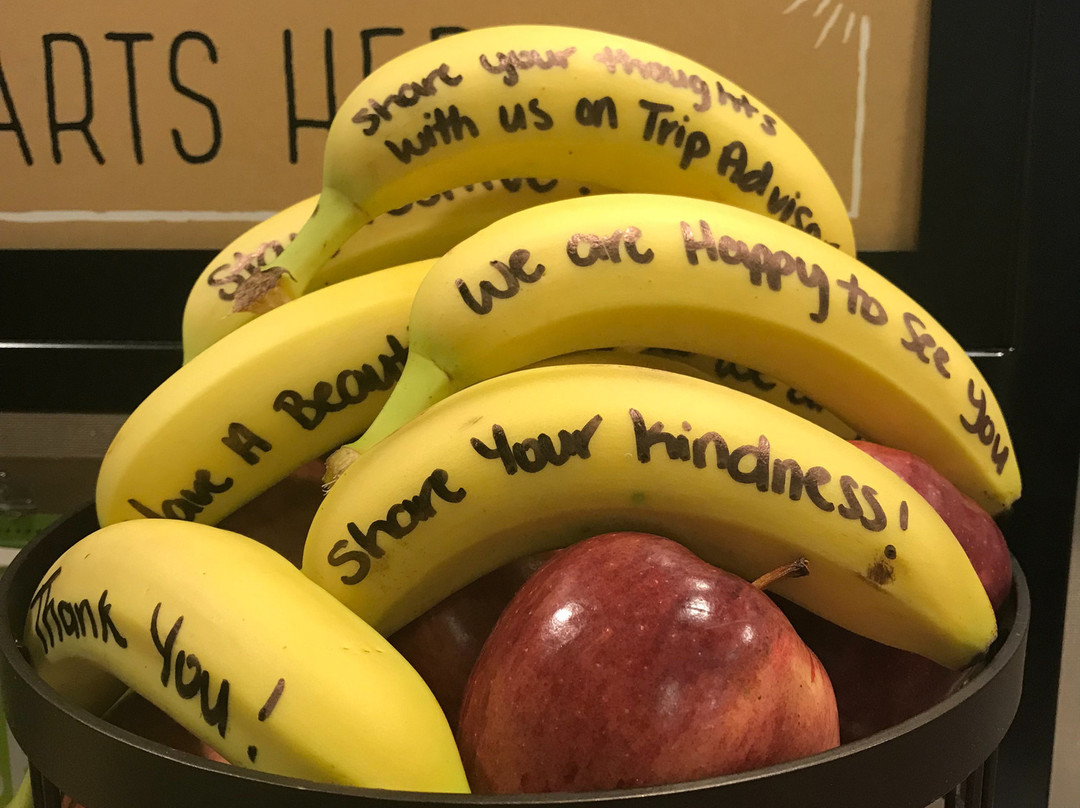 ARTS HER
share your thoughts
with us on Trip Advisor
Stay Positive!
We are Happy to See you
Have A Beaut
we a
Share Your Kindness!
Thank You!